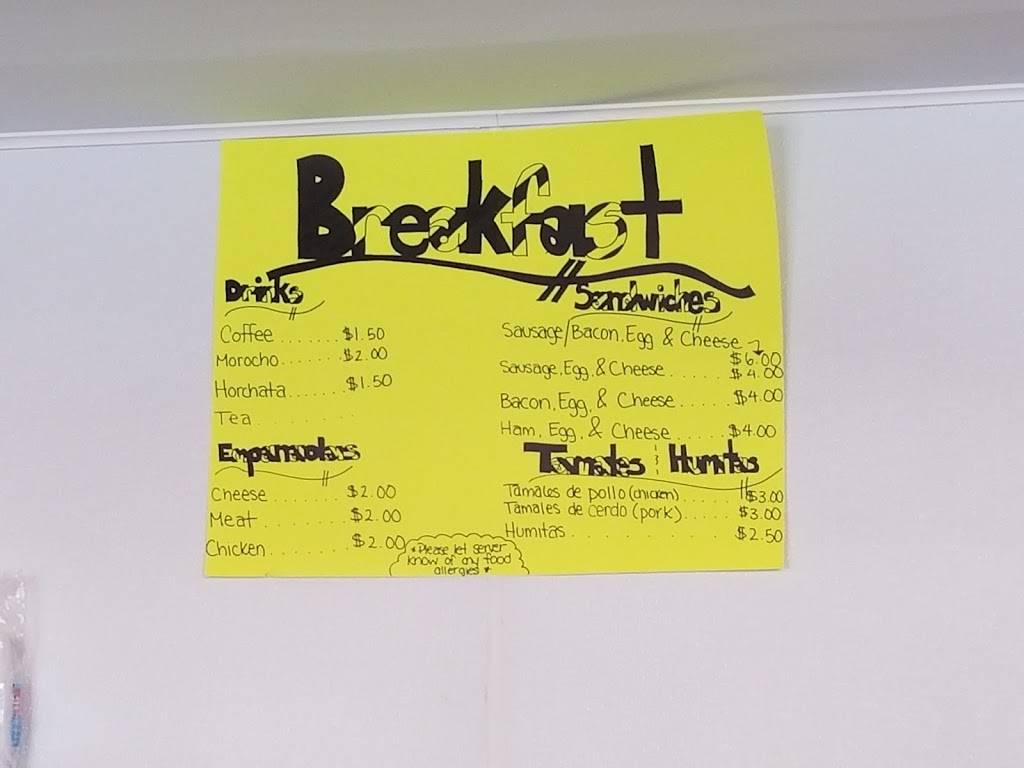 Breakfast
Drinks
Coffee ....... $1.50
Morocho ....... $2.00
Horchata ....... $1.50
Tea . . . . .
Empanadas
Cheese ....... $2.00
Meat ....... $2.00
Chicken ....... $2.00
Sandwiches
Sausage/Bacon, Egg & Cheese
$6.00
Sausage, Egg, & Cheese ...... $4.00
Bacon, Egg, & Cheese ...... $4.00
Ham, Egg, & Cheese ...... $4.00
Tamales & Humitas
Tamales de pollo (chicken) ...... $3.00
Tamales de cerdo (pork) ..... $3.00
Humitas ........ $2.50
*Please let server
know of any food
allergies*